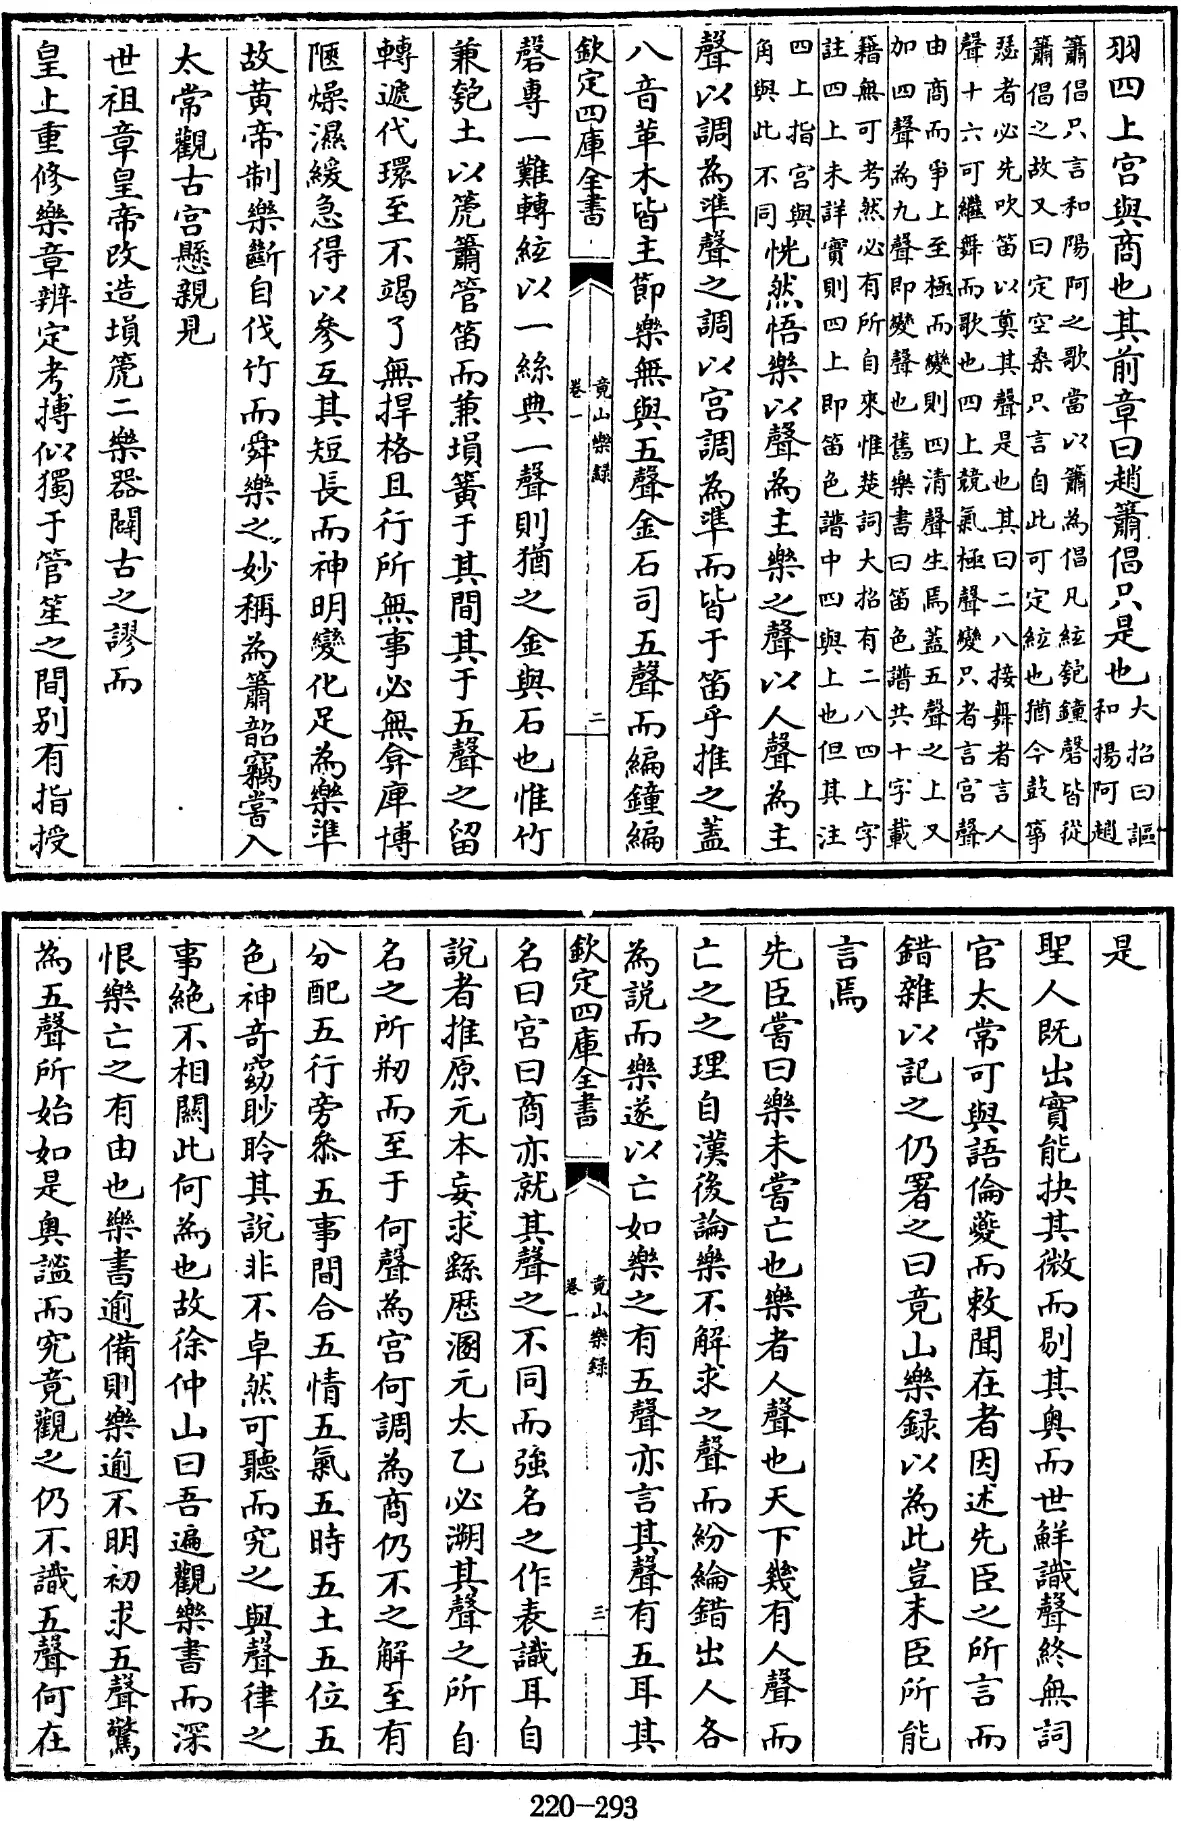 羽四上宫與商也其前章曰趙簫倡只是也
大招曰謳
和揚阿趙
簫倡只言和陽阿之歌當以簫為倡凡絃匏鐘磬皆從
簫倡之故又曰定空桑只言自此可定絃也猶今鼓箏
瑟者必先吹笛以奠其聲是也其曰二八接舞者言人
聲十六可繼舞而歌也四上競氣極聲變只者言宫聲
由商而爭上至極而變則四清聲生焉蓋五聲之上又
加四聲為九聲即變聲也舊樂書曰笛色譜共十字載
籍無可考然必有所自來惟楚詞大招有二八四上字
註四上未詳實則四上即笛色譜中四與上也但其注
四上指宫與
角與此不同
恍然悟樂以聲為主樂之聲以人聲為主
聲以調為準聲之調以宫調為準而皆于笛乎推之蓋
八音革木皆主節樂無與五聲金石司五聲而編鐘編
欽定四庫全書
竟山樂録
卷一
二
磬專一難轉絃以一絲典一聲則猶之金與石也惟竹
兼匏土以箎簫管笛而兼塤簧于其間其于五聲之留
轉遞代環至不竭了無捍格且行所無事必無弇庳博
陿燥濕緩急得以參互其短長而神明變化足為樂準
故黄帝制樂斷自伐竹而舜樂之妙稱為簫韶竊嘗入
太常觀古宫懸親見
世祖章皇帝改造塤箎二樂器闢古之謬而
皇上重修樂章辨定考搏似獨于管笙之間别有指授
是
聖人既出實能抉其微而剔其奥而世鮮識聲終無詞
官太常可與語倫夔而敕聞在者因述先臣之所言而
錯雜以記之仍署之曰竟山樂録以為此豈末臣所能
言焉
先臣嘗曰樂未嘗亡也樂者人聲也天下幾有人聲而
亡之之理自漢後論樂不解求之聲而紛綸錯出人各
為說而樂遂以亡如樂之有五聲亦言其聲有五耳其
欽定四庫全書
竟山樂録
卷一
三
名曰宫曰商亦就其聲之不同而強名之作表識耳自
說者推原元本妄求繇歴溷元太乙必溯其聲之所自
名之所剏而至于何聲為宫何調為商仍不之解至有
分配五行旁叅五事間合五情五氣五時五土五位五
色神竒窈眇聆其說非不卓然可聽而究之與聲律之
事絶不相關此何為也故徐仲山曰吾遍觀樂書而深
恨樂亡之有由也樂書逾備則樂逾不明初求五聲驚
為五聲所始如是奥謐而究竟觀之仍不識五聲何在
220-293